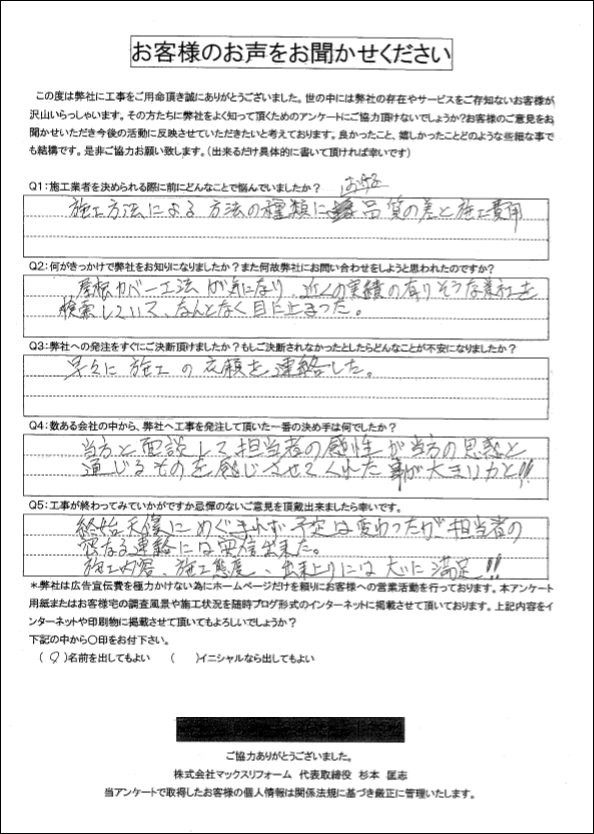 お客様のお声をお聞かせください
この度は弊社に工事をご用命頂き誠にありがとうございました。世の中には弊社の存在やサービスをご存知ないお客様が
沢山いらっしゃいます。その方たちに弊社をよく知って頂くためのアンケートにご協力頂けないでしょうか?お客様のご意見をお
聞かせいただき今後の活動に反映させていただきたいと考えております。良かったこと、嬉しかったことどのような些細な事で
も結構です。是非ご協力お願い致します。(出来るだけ具体的に書いて頂ければ幸いです)
Q1:施工業者を決められる際に前にどんなことで悩んでいましたか?
施工方法による方法の種類に 品質の差と施工費用
Q2:何がきっかけで弊社をお知りになりましたか?また何故弊社にお問い合わせをしようと思われたのですか?
屋根カバー工法が気になり、近くの実績の有りそうな業社を
検索していて、なんとなく目に止まった。
Q3:弊社への発注をすぐにご決断頂けましたか?もしご決断されなかったとしたらどんなことが不安になりましたか?
早々に施工の依頼を連絡した。
Q4:数ある会社の中から、弊社へ工事を発注して頂いた一番の決め手は何でしたか?
当方と面談して担当者の感性が当方の思惑と
通じるものを感じさせてくれた事が大きいカと!!
Q5:工事が終わってみていかがですか忌憚のないご意見を頂戴出来ましたら幸いです。
終始天候にめぐまれず予定は変わったが担当者の
密なる連絡には安信出来た。
施工内容、施工態度、出来上りには大いに満足!!
*弊社は広告宣伝費を極力かけない為にホームページだけを頼りにお客様への営業活動を行っております。本アンケート
用紙またはお客様宅の調査風景や施工状況を随時ブログ形式のインターネットに掲載させて頂いております。上記内容をイ
ンターネットや印刷物に掲載させて頂いてもよろしいでしょうか?
下記の中から〇印をお付下さい。
(〇)名前を出してもよい ( )イニシャルなら出してもよい
ご協力ありがとうございました。
株式会社マックスリフォーム 代表取締役 杉本 匡志
当アンケートで取得したお客様の個人情報は関係法規に基づき厳正に管理いたします。